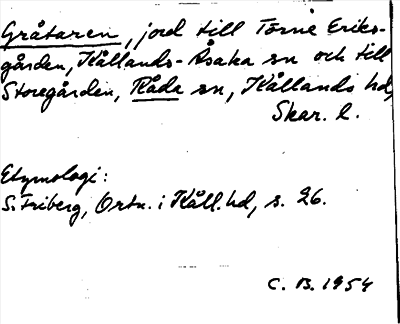 Gråtaren, jord till Torne Eriks-
gården, Kållands-Åsaka sn och till
Storegården, Råda sn, Kållands hd,
Skar. l.
Etymologi:
S. Friberg, Ortn. i Kåll. hd, s. 26.
C. B. 1954